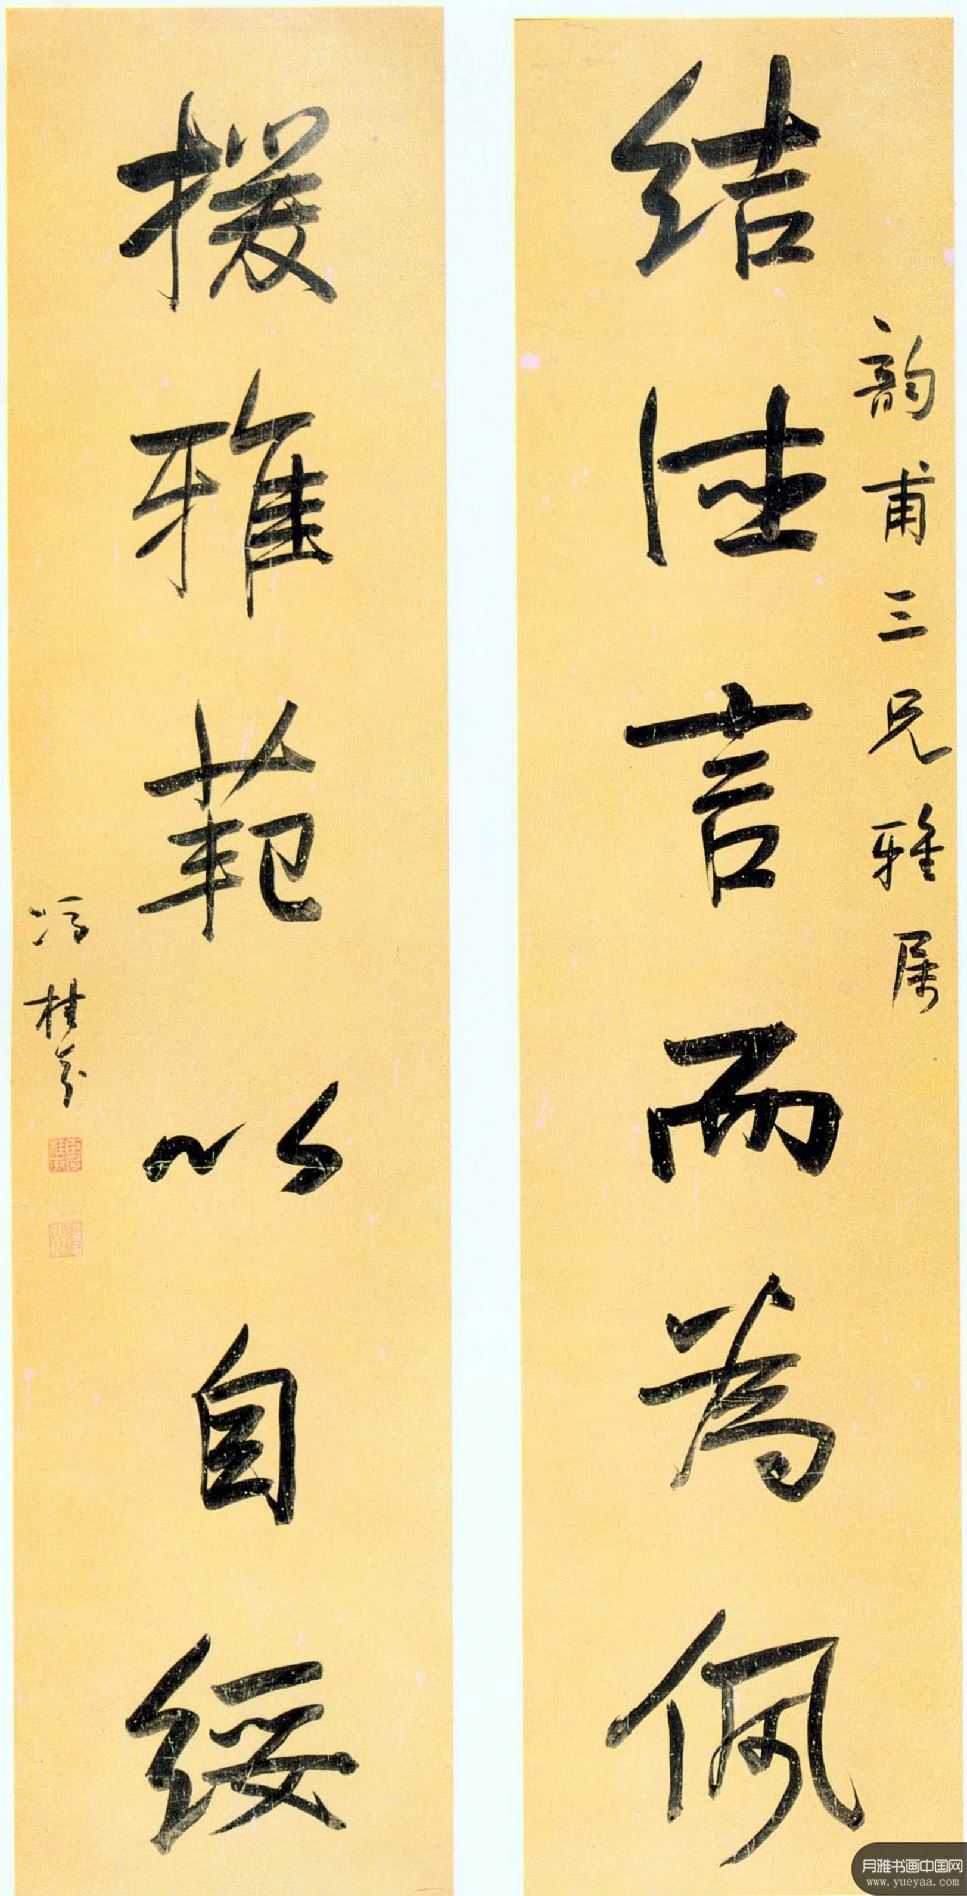 韵甫三兄雅属
结德言而为佩
援雅范以自绥
冯桂芬
月雅书画中国网
www.yueyaa.com